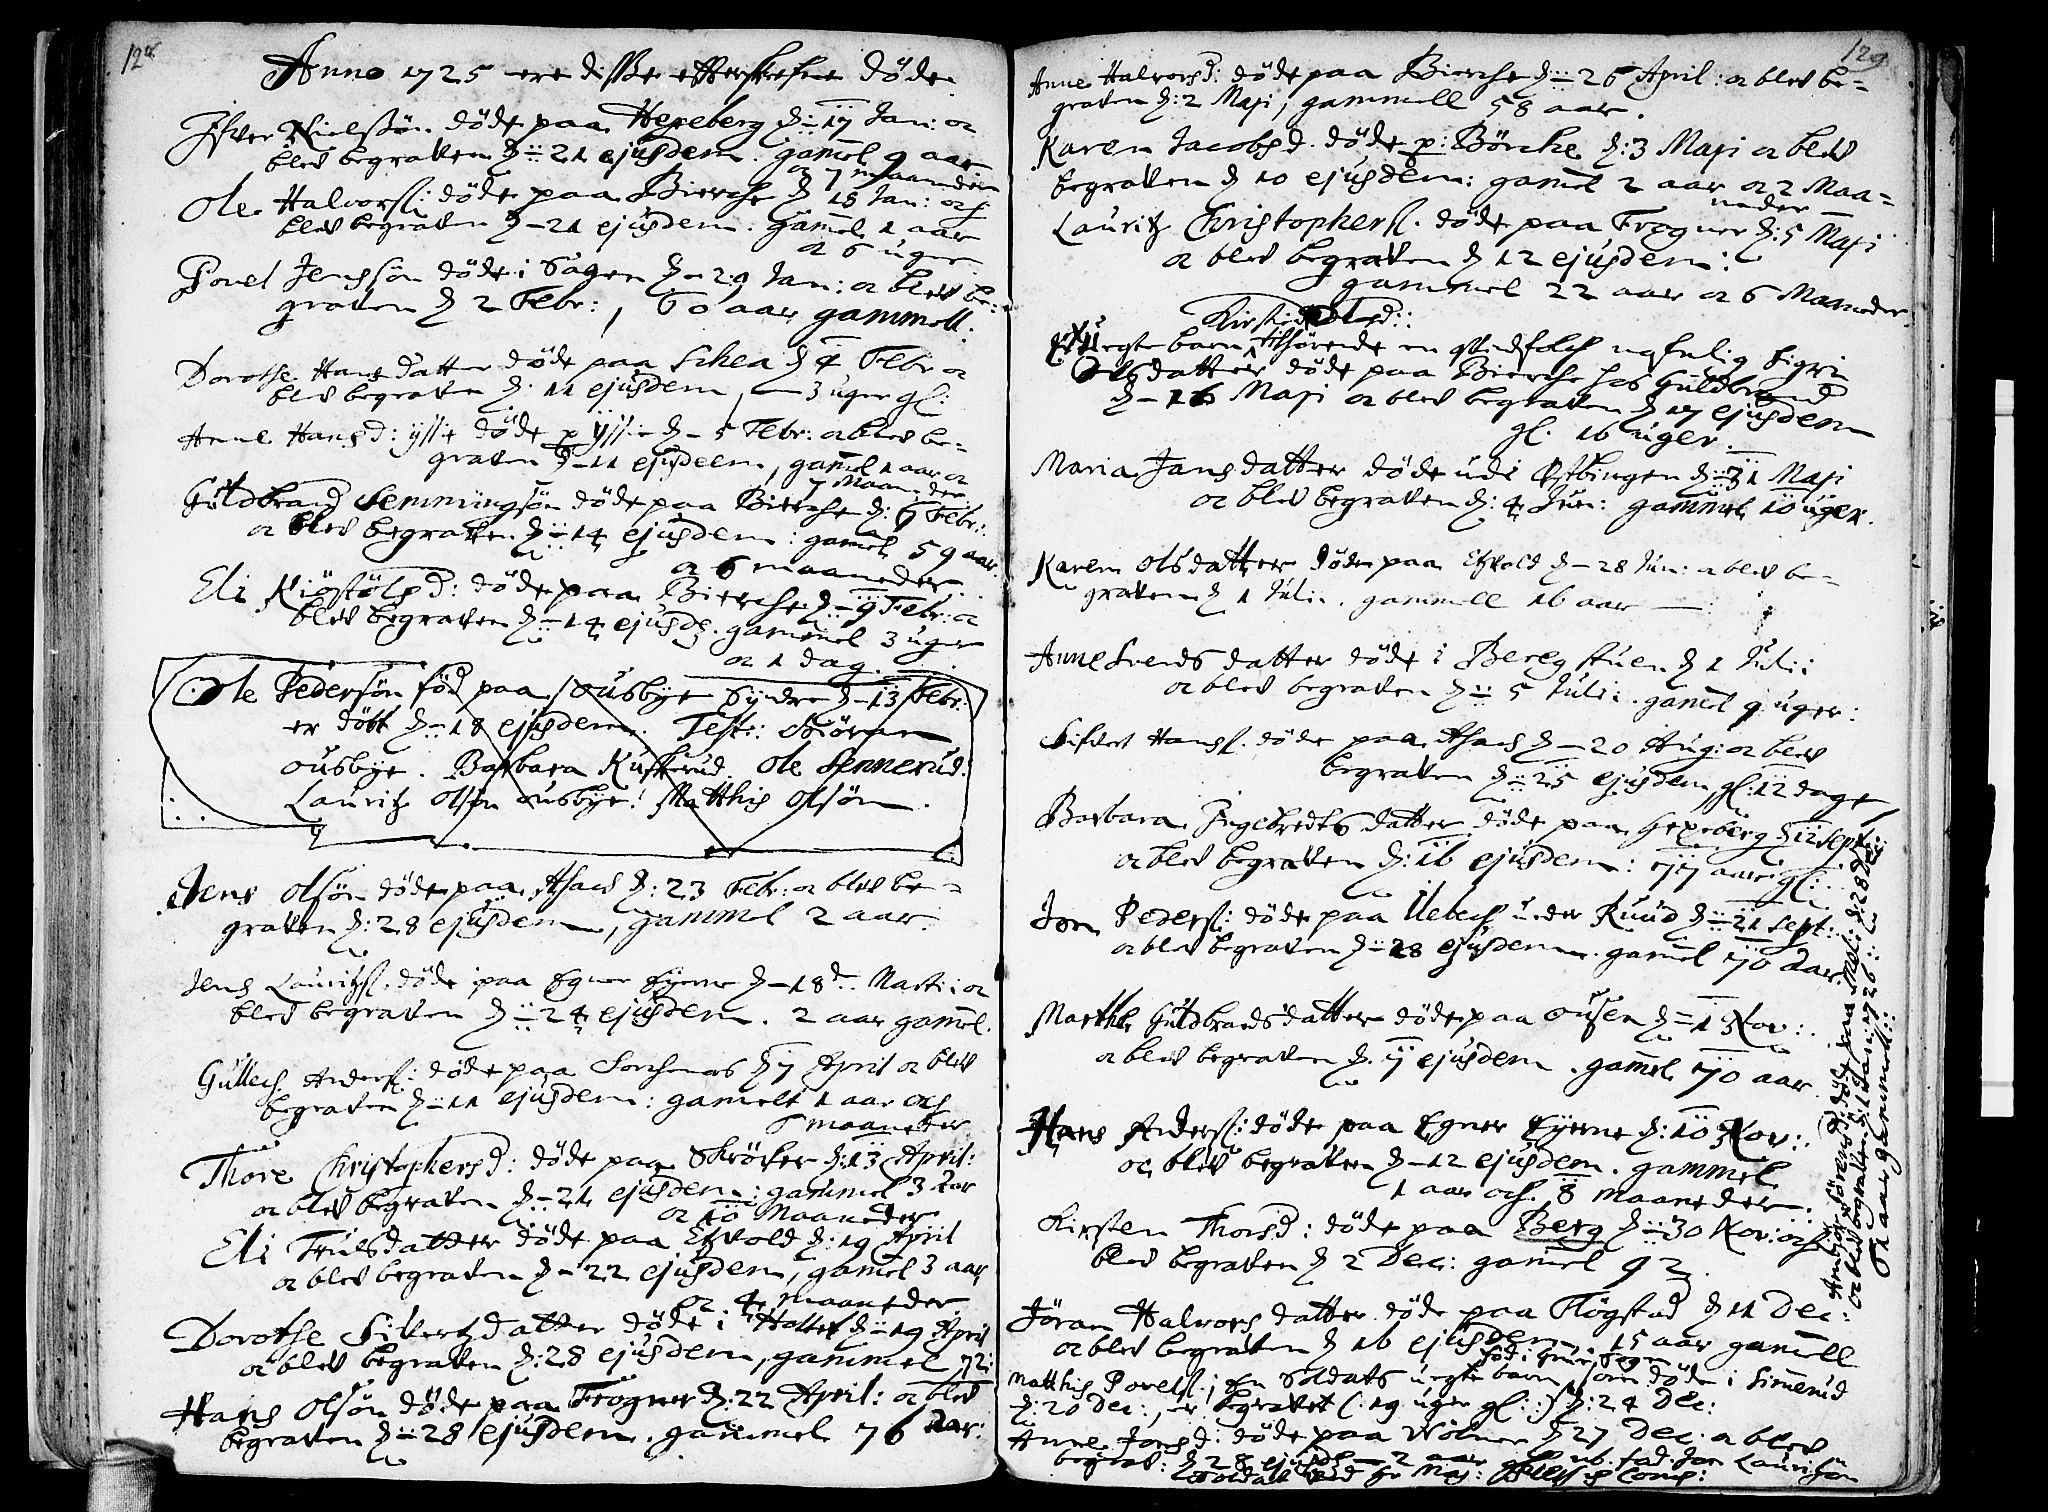 128
Anno 1725 ere disse efterskrefne döde.
Ifver Nielssön döde paa Hexeberg d: 17 Jan: oc
blev begraven d: 21 ejusdem. gamel 9 aar
oc 7 maaneder
Ole Halvorss: döde paa Bierche d 18 Jan: och
blev begraven d - 21 ejusdem: gamel 1 aar
oc 6 uger
Povel Jenssön döde i Sagen d - 29 Jan: oc blev be-
graven d 2 Febr:, 60 aar gammell.
Dorothe Hans datter döde paa d 4 Febr oc
blev begraven d. 11 ejusdem, 3 uger gl:
Anne Hansd: döde p d - 5 Febr: oc blev be-
graven d - 11 ejusdem, gamel 1 aar oc
7 Maaneder
Guldbrand Semmingsön döde paa Bierche d: 9 Febr:
oc blev begraven d: 14 ejusdem: gamel 59 aar
oc 6 maaneder
Eli Kiöstölsd: döde paa Bierche d - 9 Febr: oc
blev begraven d - 14 ejusd. gammel 3 uger
oc 1 dag.
Ole Pedersön föd paa Ousbye Syndre d - 13 Febr:
er döbt d - 18 ejusdem. Test: Siören
ousbye. Barbara Kusserud. Ole Sennerud.
Lauritz Olsön ousbye. Matthis Olsön.
Jens Olsön döde paa Asach d: 23 Febr: oc blev be-
graven d: 28 ejusdem, gammel 2 aar.
Jens Lauritzs. döde paa Egner Eyerne d - 18 Marti: oc
blev begraven d: 24 ejusdem. 2 aar gamel.
Gullech Anders: döde paa Sorchnes d 7 April oc blev
begraven d: 11 ejusdem: gamelt 1 aar och
maaneder
Thore Christophersd: döde paa Skröcker d: 13 April:
oc blev begraven d - 21 ejusdem: gammel 3 aar
oc 10 Maaneder
Eli Truls datter döde paa Egvold d: 19 April
oc blev begraven d - 22 ejusdem, gamel 3 aar
oc 4 maaneder
Dorothe Sivertzdatter döde i Holtet d: 19 April
oc blev begraven d: 28 ejusdem, gammel 72:
Hans Olsön döde paa Frogner d: 22 April: oc blev
begraven d: 28 ejusdem. gammel 76 aar:
129
Anne Halvorsd: döde paa Bierche d: 26 April: oc blev be-
graven d: 2 Maji, gammell 58 aar.
Karen Jacobsd. döde p: Börche d: 3 Maji oc blev
begraven d 10 ejusdem: gamel 2 aar oc 2 Maa-
neder
Lauritz Christophers. döde paa Frogner d: 5 Maji
oc blev begraven d 12 ejusdem:
gammel 22 aar oc 6 Maaneder.
Kirstie Olsd:
Et uegte barn tilhörende en qvindfolch nafnlig Sigri
Olsdatter döde paa Bierche hos Guldbrand
d - 16 Maji oc blev begraven d 17 ejusdem
gl. 16 uger.
Maria Jans datter döde udi Östbingen d: 31 Maji
oc blev begraven d: 4 Jun: gammel 10 uger.
Karen Olsdatter döde paa Egvold d - 28 Jun: oc blev be-
graven d 1 Juli. gammell 16 aar
Anne Svends datter döde i Bergstuen d 1 Juli:
oc blev begraven d: 5 Juli: gamel 9 uger:
Sifvert Hanss. döde paa Asach d - 20 Aug: oc blev
begraven d: 25 ejusdem, gl: 12 dage
Barbara Ingebredts datter döde paa Hexeberg d 12 Sept:
oc blev begraven d: 16 ejusdem: 77 aar gl:
Jon Peders: döde paa Uebech under Ruud d: 21 Sept:
oc blev begraven d: 28 ejusdem. gamel 70 aar.
Marthe Guldbrandsdatter döde paa Ousen d = 1 Nov:
oc blev begraven d. 7 ejusdem. gamel 70 aar
Hans Anders: döde paa Egner Eyerne d: 10 Nov:
oc blev begraven d - 12 ejusdem. gammel
1 aar och 8 maaneder.
Kirsten Thorsd: döde paa Berg d: 30 Nov: och
blev begraven d 2 Dec: gamel 92.
Jöran Halvors datter döde paa Högstad d 11 Dec:
oc blev begraven d 16 ejusdem, 15 aar gammell
föd i
Matthis Povels:, En Soldats uegte barn, som döde i Simerud
d: 20 Dec:, er begravet (: 19 uger gl: :) d: 24 Dec:
Anne Jonsd: döde paa Wölner d 27 Dec: oc blev
begrav: d 28 ejusd - 2 aar gl nb. fad. Jon Lauritsön
Soldatt Comp:
döde paa Moli: d: 28 Dec:
oc blev begraven d: 1 Jan: 1726:
aar gammell: